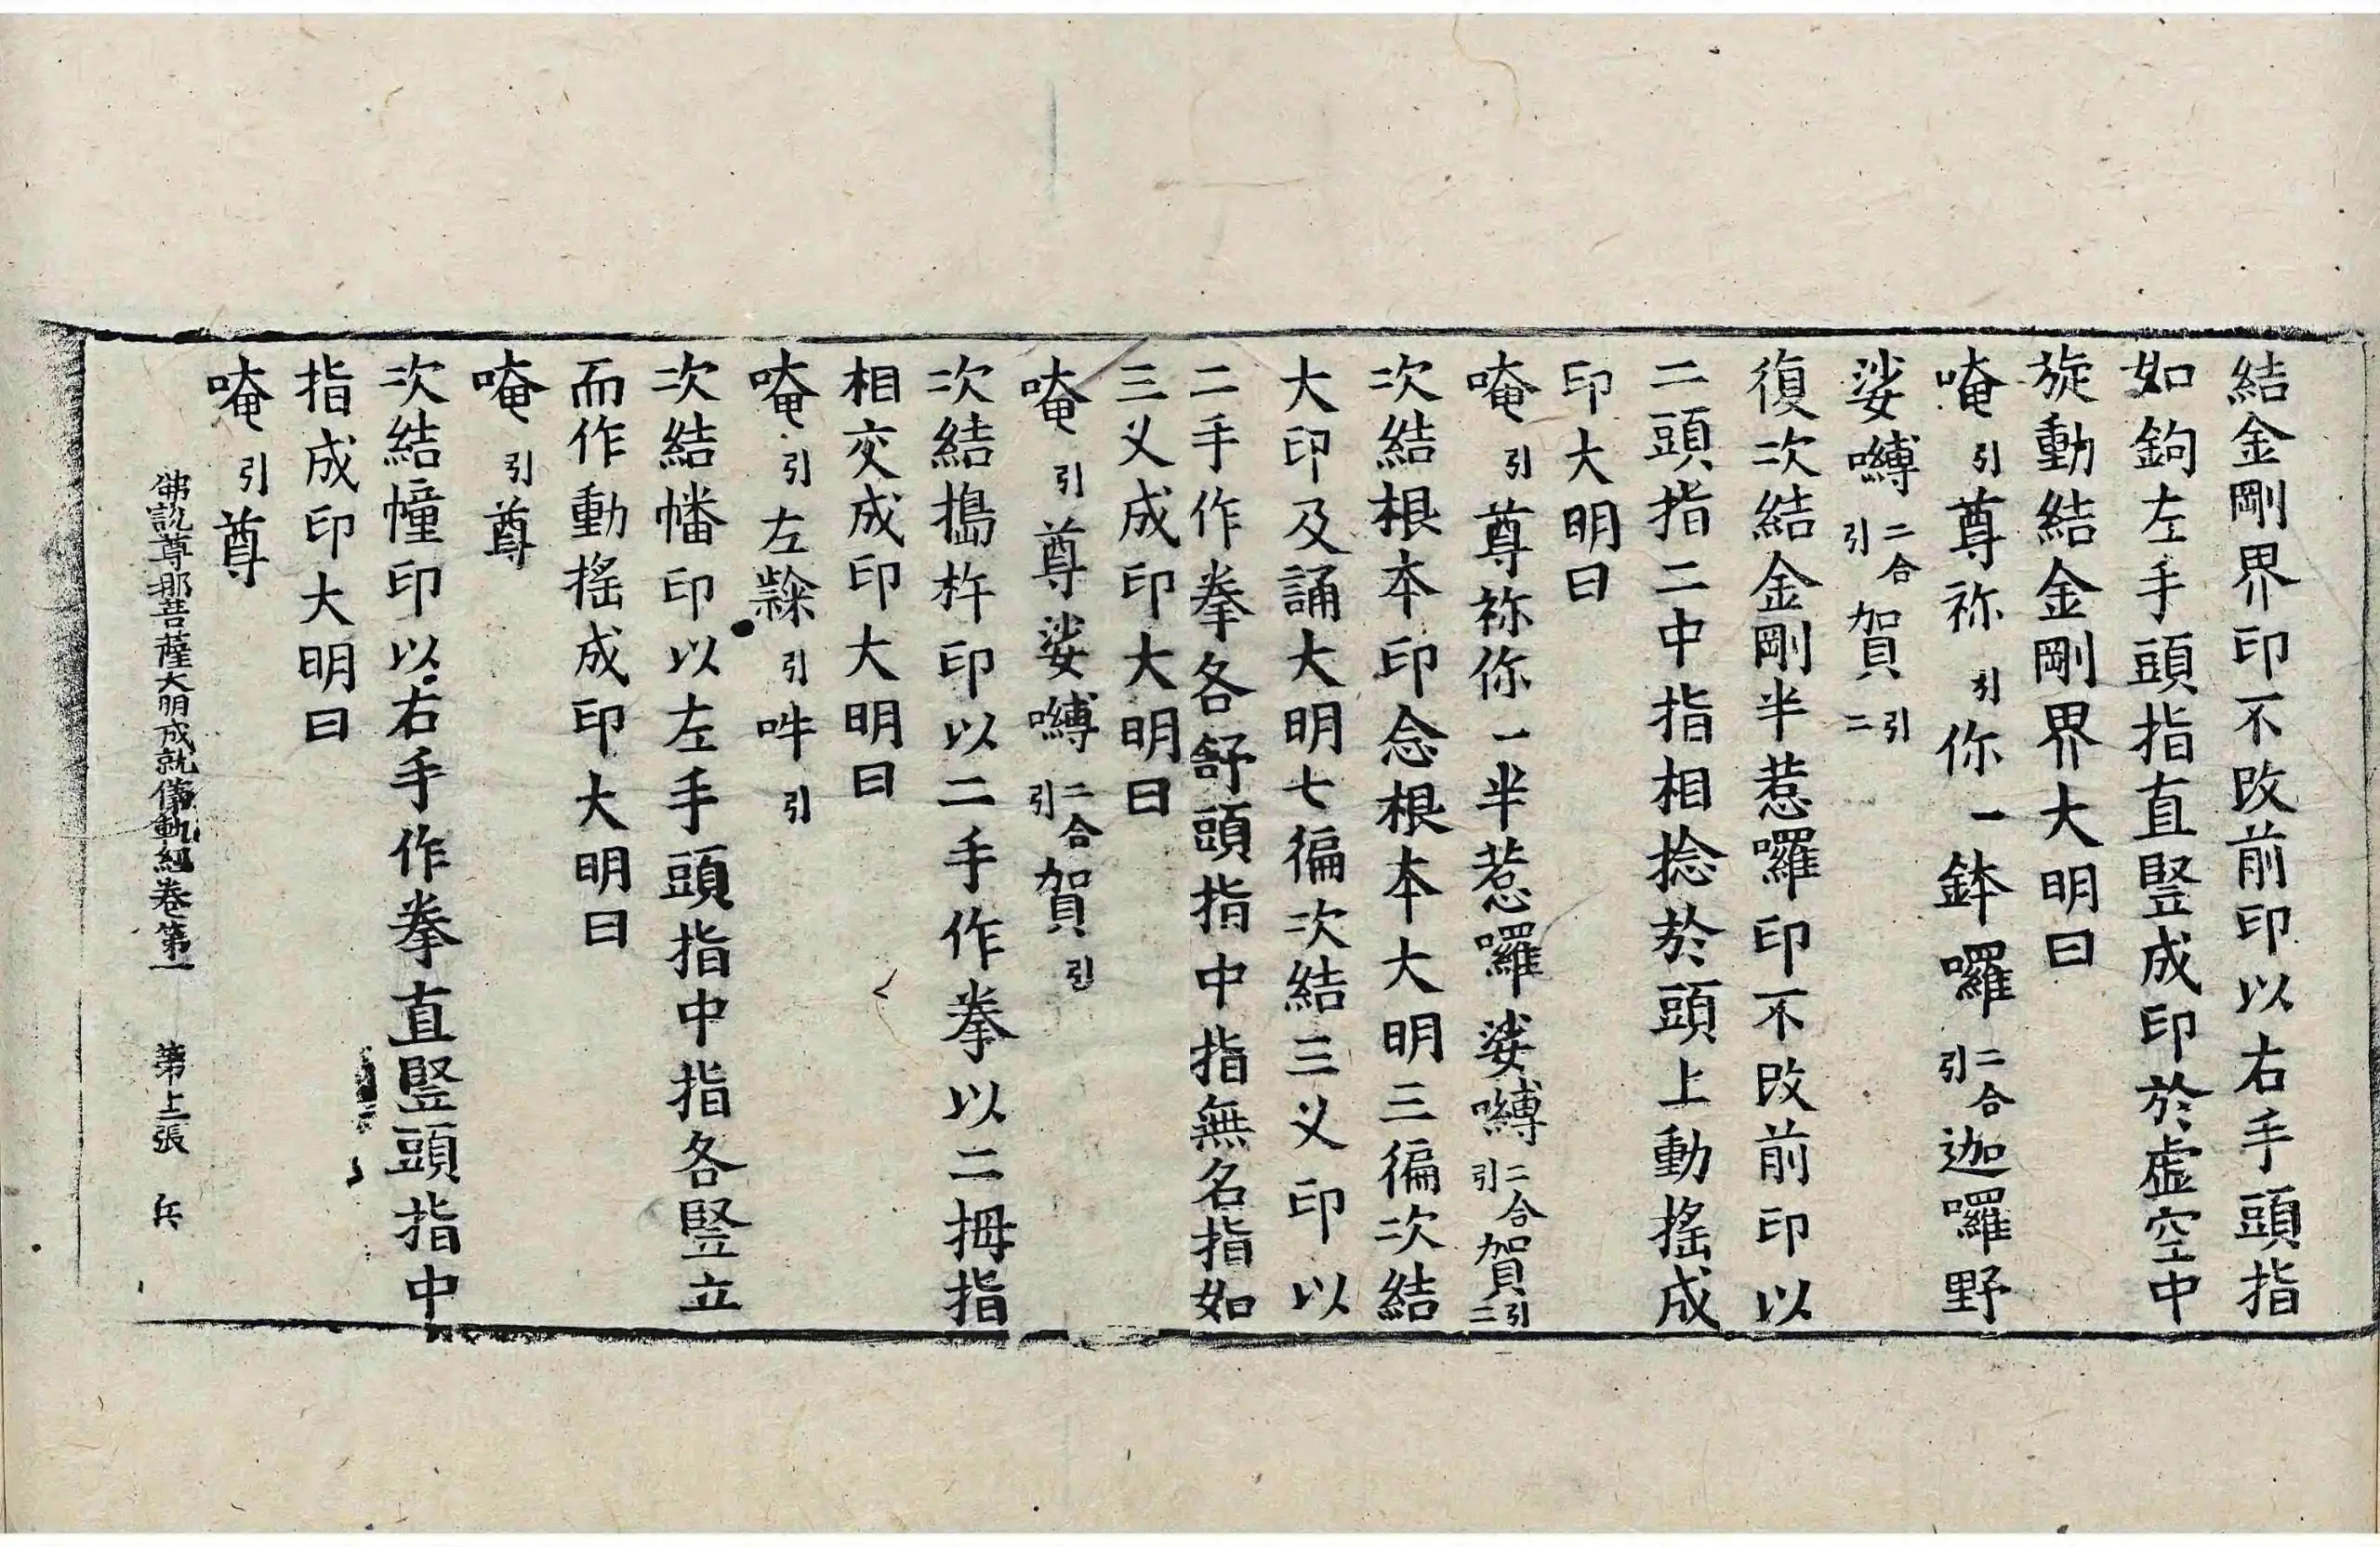 結金剛界印不改前印以右手頭指
如鉤左手頭指直豎成印於虛空中
旋動結金剛界大明曰
唵引尊祢引你一鉢囉二合引迦囉野
娑嚩二合引賀引二
復次結金剛半惹囉印不改前印以
二頭指二中指相捻於頭上動搖成
印大明曰
唵引尊祢你一半惹囉娑嚩二合引賀引二
次結根本印念根本大明三徧次結
大印及誦大明七徧次結三义印以
二手作拳各舒頭指中指無名指如
三义成印大明曰
唵引尊娑嚩二合引賀引
次結搗杵印以二手作拳以二拇指
相交成印大明曰
唵引左隸引吽引
次結幡印以左手頭指中指各豎立
而作動搖成印大明曰
唵引尊
次結幢印以右手作拳直豎頭指中
指成印大明曰
唵引尊
佛說尊那菩薩大明成就儀軌經卷第一 第上張 兵